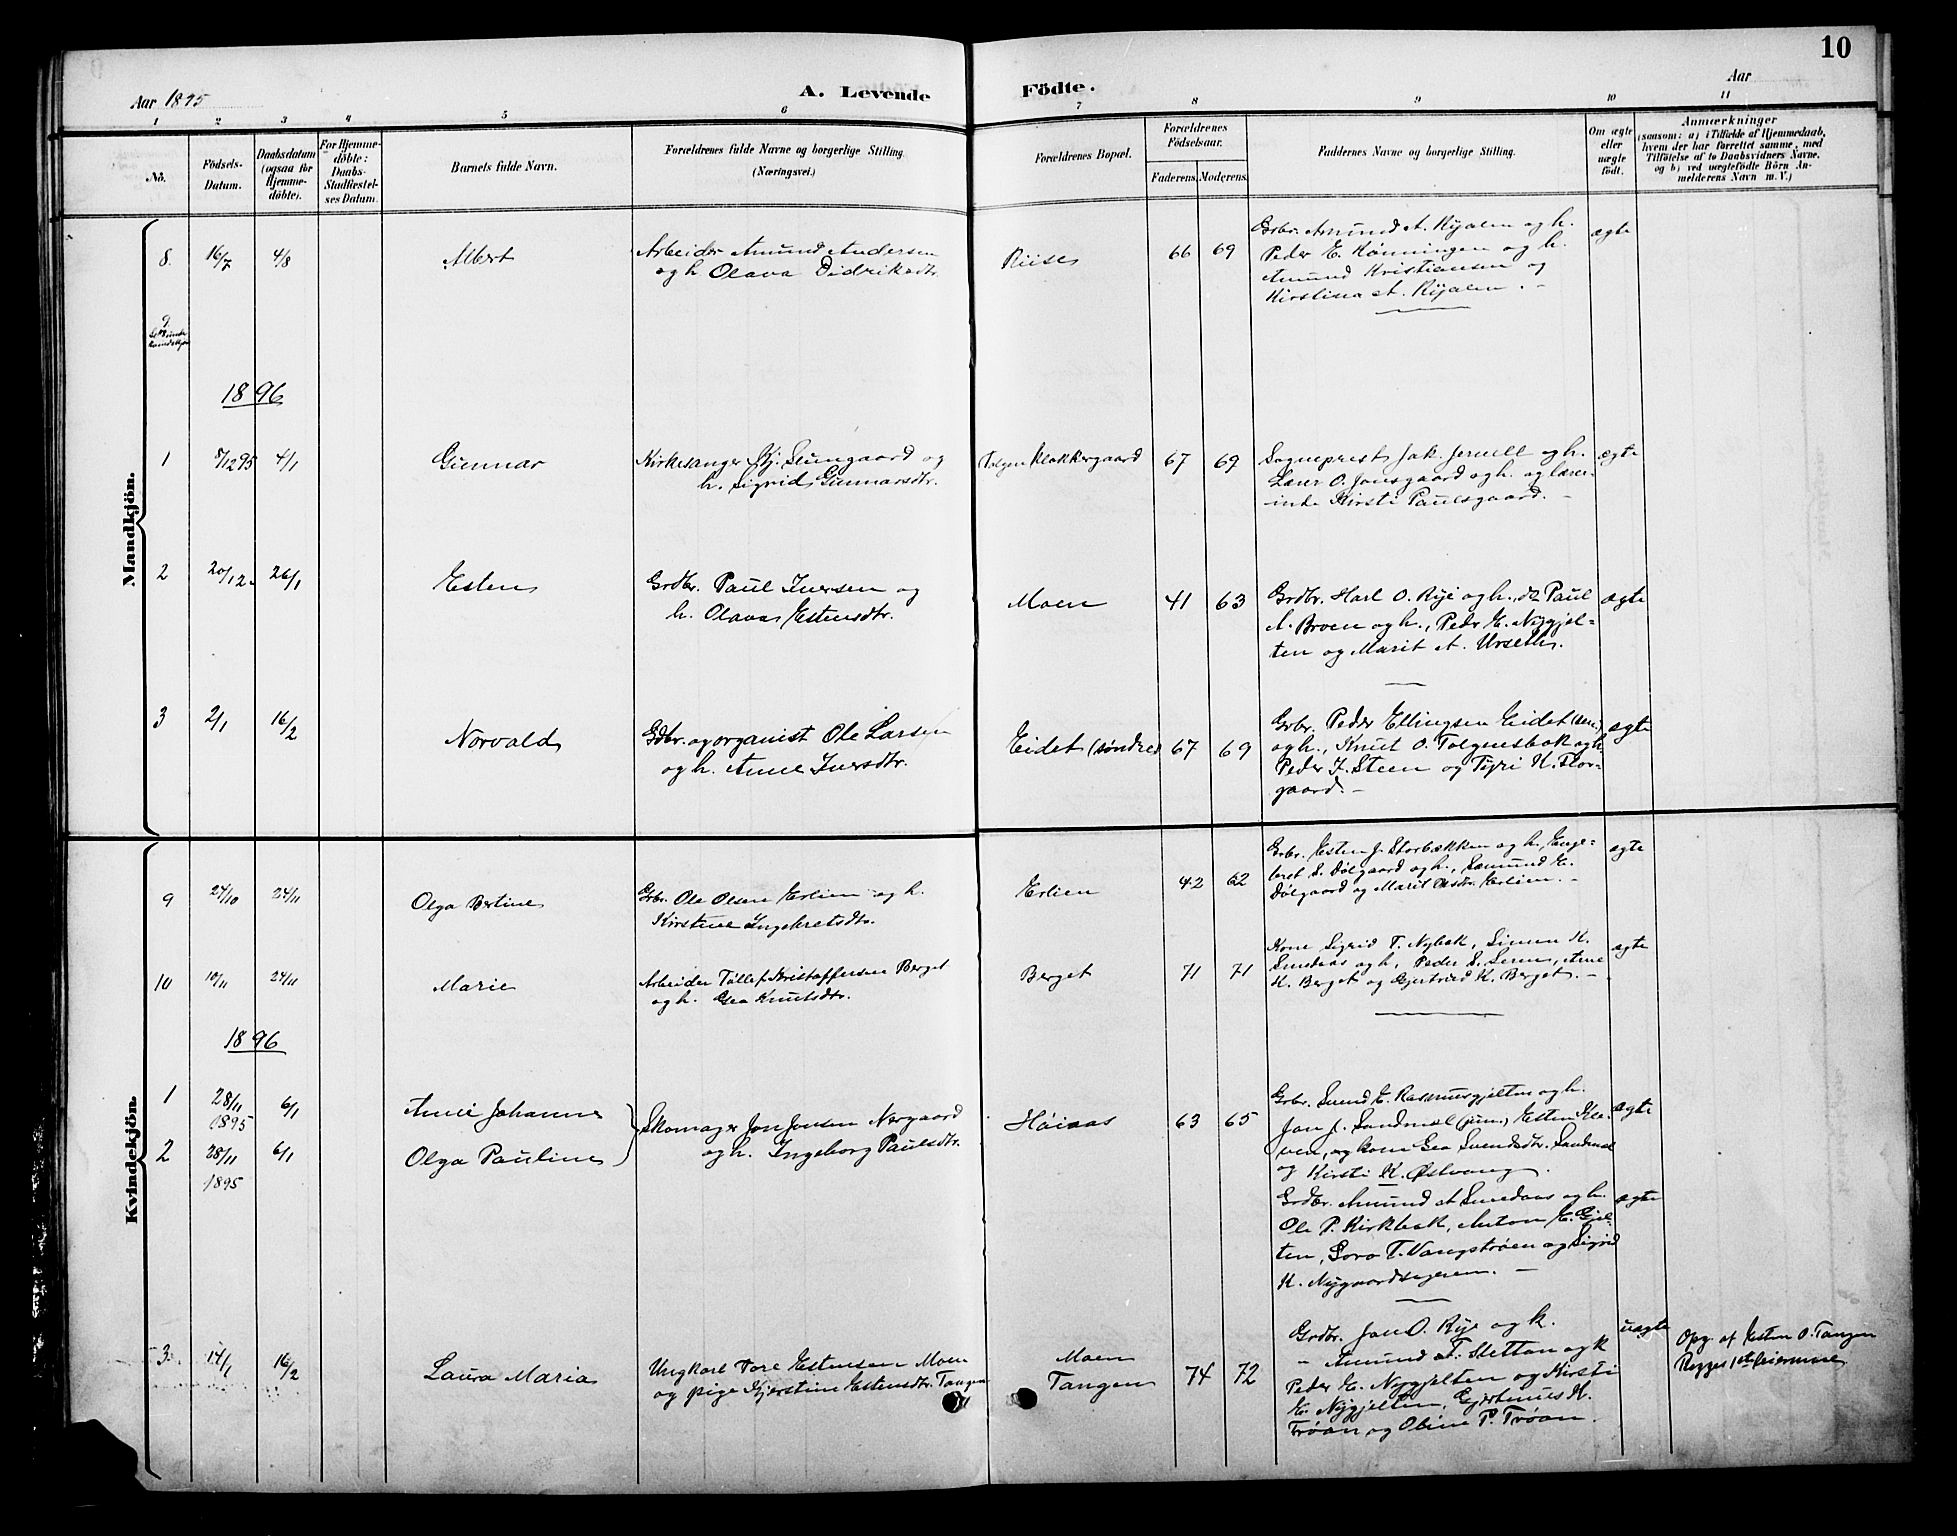 10
Aar 1895
A. Levende Födte.
Aar
1 2 3 4 5 6 7 8 9 10 11
No.
Födsels-
Datum.
Daabsdatum
(ogsaa for
Hjemme-
döbte).
For Hjemme-
döbte:
Daabs-
Stadfæstel-
ses Datum.
Barnets fulde Navn.
Forældrenes fulde Navne og borgerlige Stilling
(Næringsvei.)
Forældrenes Bopæl.
Forældrenes
Födselsaar.
Faderens. Moderens.
Faddernes Navne og borgerlige Stilling.
Om ægte
eller
uægte
födt.
Anmærkninger
(saasom: a) i Tilfælde af Hjemmedaab,
hvem der har forrettet samme, med
Tilföielse af to Daabsvidners Navne,
og b) ved uægtefödte Börn An-
melderens Navn m. V.)
Mandkjön.
8. 16/7 4/8 Albert
Arbeider Amund Andersen
og h. Olava Didriksdtr.
Riise 66 69
Grbr. Amund A. Kyalen og h.
Peder E. Rønningen og h.
Amund Kristiansen og
Kirstina A. Kyalen. -
ægte
9
1896
1 5/12 95 4/1 Gunnar
Kirkesanger Kj. Leungaard og
h. Sigrid Gunnarsdtr.
Tolgen Klokkergaard 67 69
Sogneprest Jak. Jervell og h.
Lærer O. Jonsgaard og h. og lærer-
inde Kirsti Paulsgaard. -
ægte
2 20/12. 26/1 Esten
Grdbr. Paul Iversen og
h. Olava Estensdtr.
Moen 41 63
Grdbr. Harl O. Rye og h., do Paul
A. Broen og h., Peder E. Nygjel-
ten og Marit A. Urseth.
ægte
3 2/1 16/2 Norvald
Gdbr. og organist Ole Larsen
og h. Anne Iversdtr.
Eidet (søndre) 67 69
Grbr. Peder Ellingsen Eidet (sen.)
og h., Knut O. Tolgensbak og h.
Peder I. Steen og Tyri K. Flor-
gaard. -
ægte
Kvindekjön.
9 27/10 24/11 Olga Bertine
Grbr. Ole Olsen Erlien og h.
Kirstine Ingebretsdtr.
Erlien 42 62
Grbr. Esten J. Storbækken og h., Inge-
bret S. Dølgaard og h., Sæmund E.
Dølgaard og Marit Olsdtr. Erlien. -
ægte
10 10/11 24/11 Marie
Arbeider Tollef Kristoffersen Berget
og h. Gea Knutsdtr.
Berget 71 71
Kone Sigrid T. Nybak, Simen K.
Smedaas og h., Peder S. Lerum, Ane
K. Berget og Gjertrud K. Berget. -
ægte
1896
1 28/11 1895 6/1 Anne Johanne
2 28/11 1895 6/1 Olga Pauline
Skomager Jon Jonsen Nørgaard
og h. Ingeborg Paulsdtr.
Høiaas 63 65
Grbr. Svend E. Rasmusgjelten og h.
Jon J. Sandmæl (jun.) Esten Kle-
ven, og kone Gea Svendsdtr. Sandmæl
og Kirsti K. Østvang.
ægte
Grdbr. Amund A Smedaas og h.
Ole P. Kirkbak, Anton E. Gjel-
ten, Goro T. Vangstrøen og Sigrid
K. Nygaardsgjeren. -
ægte
3. 14/1 16/2 Laura Maria
Ungkarl Tore Estensen Moen
og pige Kjerstine Estensdtr. Tangen
Moen
Tangen 74 72
Grdbr. Jon O. Rye og k.
" Amund T. Stettan og k
Peder E. Nygjelten og Kirsti
E. Nygjelten, Gjertrud K.
Trøan og Oline P. Trøan.
uægte
Opg. af Esten O. Tangen
Begges 1ste leiermaal